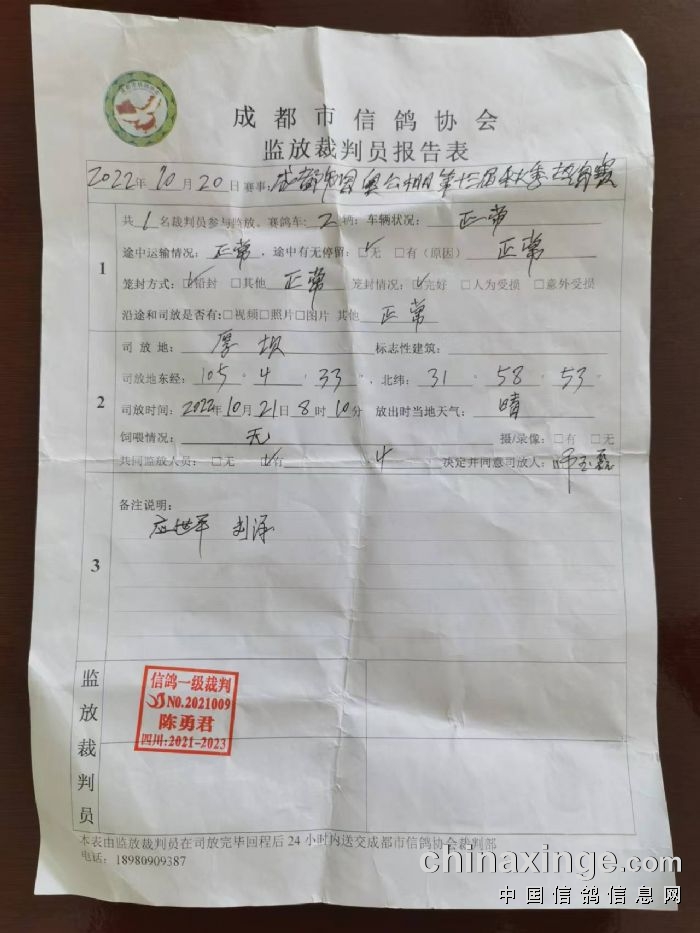 成都市信鸽协会
监放裁判员报告表
2022年10月20日 赛事: 成都 第十三届秋季 赛
1
共1名裁判员参与监放、赛鸽车:2辆; 车辆状况: 正常
途中运输情况: 正常. 途中有无停留:☑无 □有(原因) 正常
笼封方式:☑铅封 □其他 正常 笼封情况:☑完好 □人为受损 □意外受损
沿途和司放是否有:□视频□照片□图片 其他 正常
2
司 放 地: 厚坝 标志性建筑:
司放地东经: 105 ° 4 ′ 33 ″, 北纬: 31 ° 58 ′ 53 ″
司放时间: 2022年10月21日8时10分 放出时当地天气: 晴
饲喂情况: 无 摄/录像: □有 □无
共同监放人员: □无 ☑有 4 决定并同意司放人: 师玉磊
3
备注说明:
应世平 刘泽
监放裁判员
信鸽一级裁判
NO.2021009
陈勇君
四川:2021-2023
本表由监放裁判员在司放完毕回程后24小时内送交成都市信鸽协会裁判部
电话: 18980909387
chinaxinge.com
中国信鸽信息网